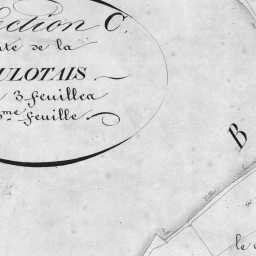 Section C.
de la
ULOTAIS
3 feuilles
me feuille
B
le